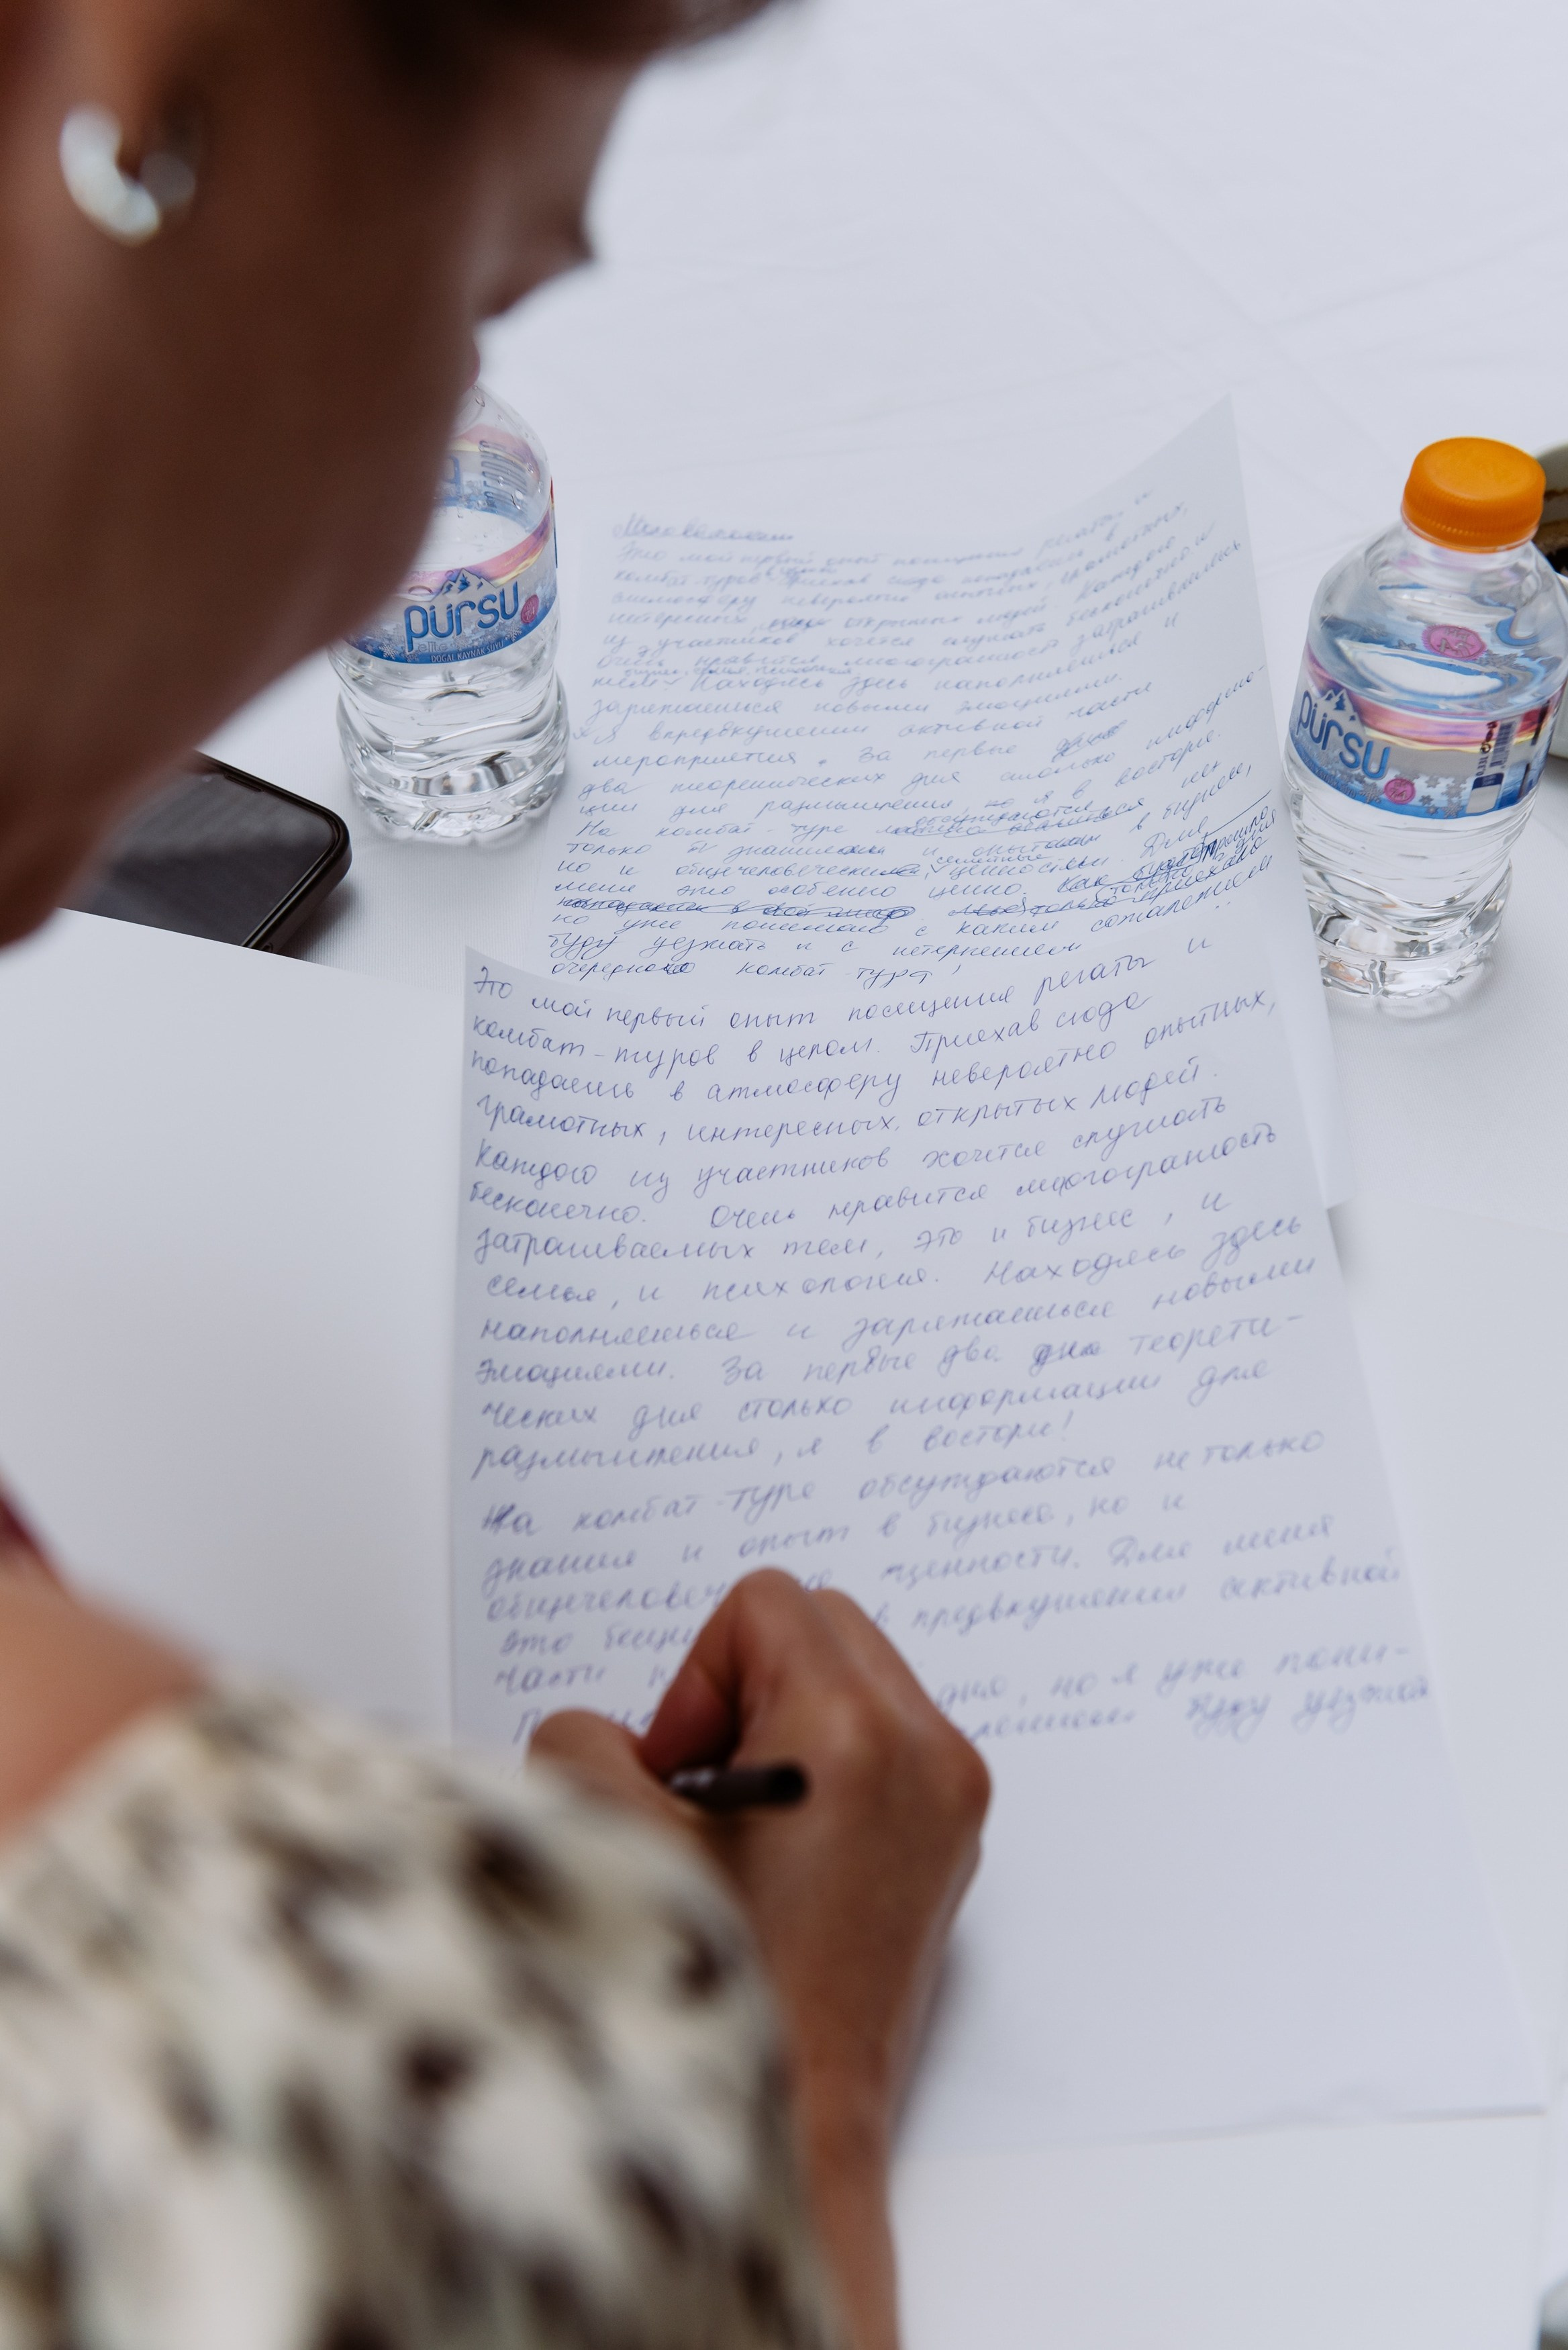 pürsu
DOĞAL KAYNAK SUYU
pürsu
Это мой первый опыт посещения регаты и
комбат-туров
атмосферу невероятно опытных, грамотных,
интересных, открытых людей. Каждого
из участников хочется слушать бесконечно.
Очень нравится многогранность затрагиваемых
тем. Находясь здесь наполняешься и
заряжаешься новыми эмоциями.
Я в предвкушении активной части
мероприятия. За первые
два теоретических дня столько информа-
ции для размышления, но я в восторге.
На комбат-туре обсуждаются не
только знаниями и опытом в бизнесе,
но и общечеловеческие, семейные ценности. Для
меня это особенно ценно. Как будто
но уже понимаю с каким сожалением
буду уезжать и с нетерпением
очередного комбат-тура!
Это мой первый опыт посещения регаты и
комбат-туров в целом. Приехав сюда
попадаешь в атмосферу невероятно опытных,
грамотных, интересных, открытых людей.
Каждого из участников хочется слушать
бесконечно. Очень нравится многогранность
затрагиваемых тем, это и бизнес, и
семья, и психология. Находясь здесь
наполняешься и заряжаешься новыми
эмоциями. За первые два дня теорети-
ческих дня столько информации для
размышления, я в восторге!
На комбат-туре обсуждаются не только
знания и опыт в бизнесе, но и
ценности. Для меня
это в предвкушении активной
части дня, но я уже пони-
буду уезжать